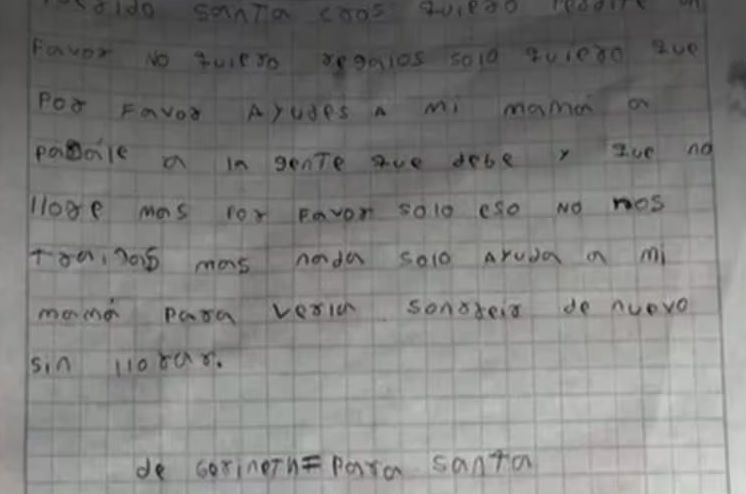 Querido santa cloos quiero pedirte un
Favor No quiero regalos solo quiero que
Por Favor Ayudes A mi mamá a
pagale a la gente que debe y que no
llore mas por Favor solo eso No nos
traigas mas nada solo Ayuda a mi
mamá para verla sonrreir de nuevo
sin llorar.
de corineth = para santa